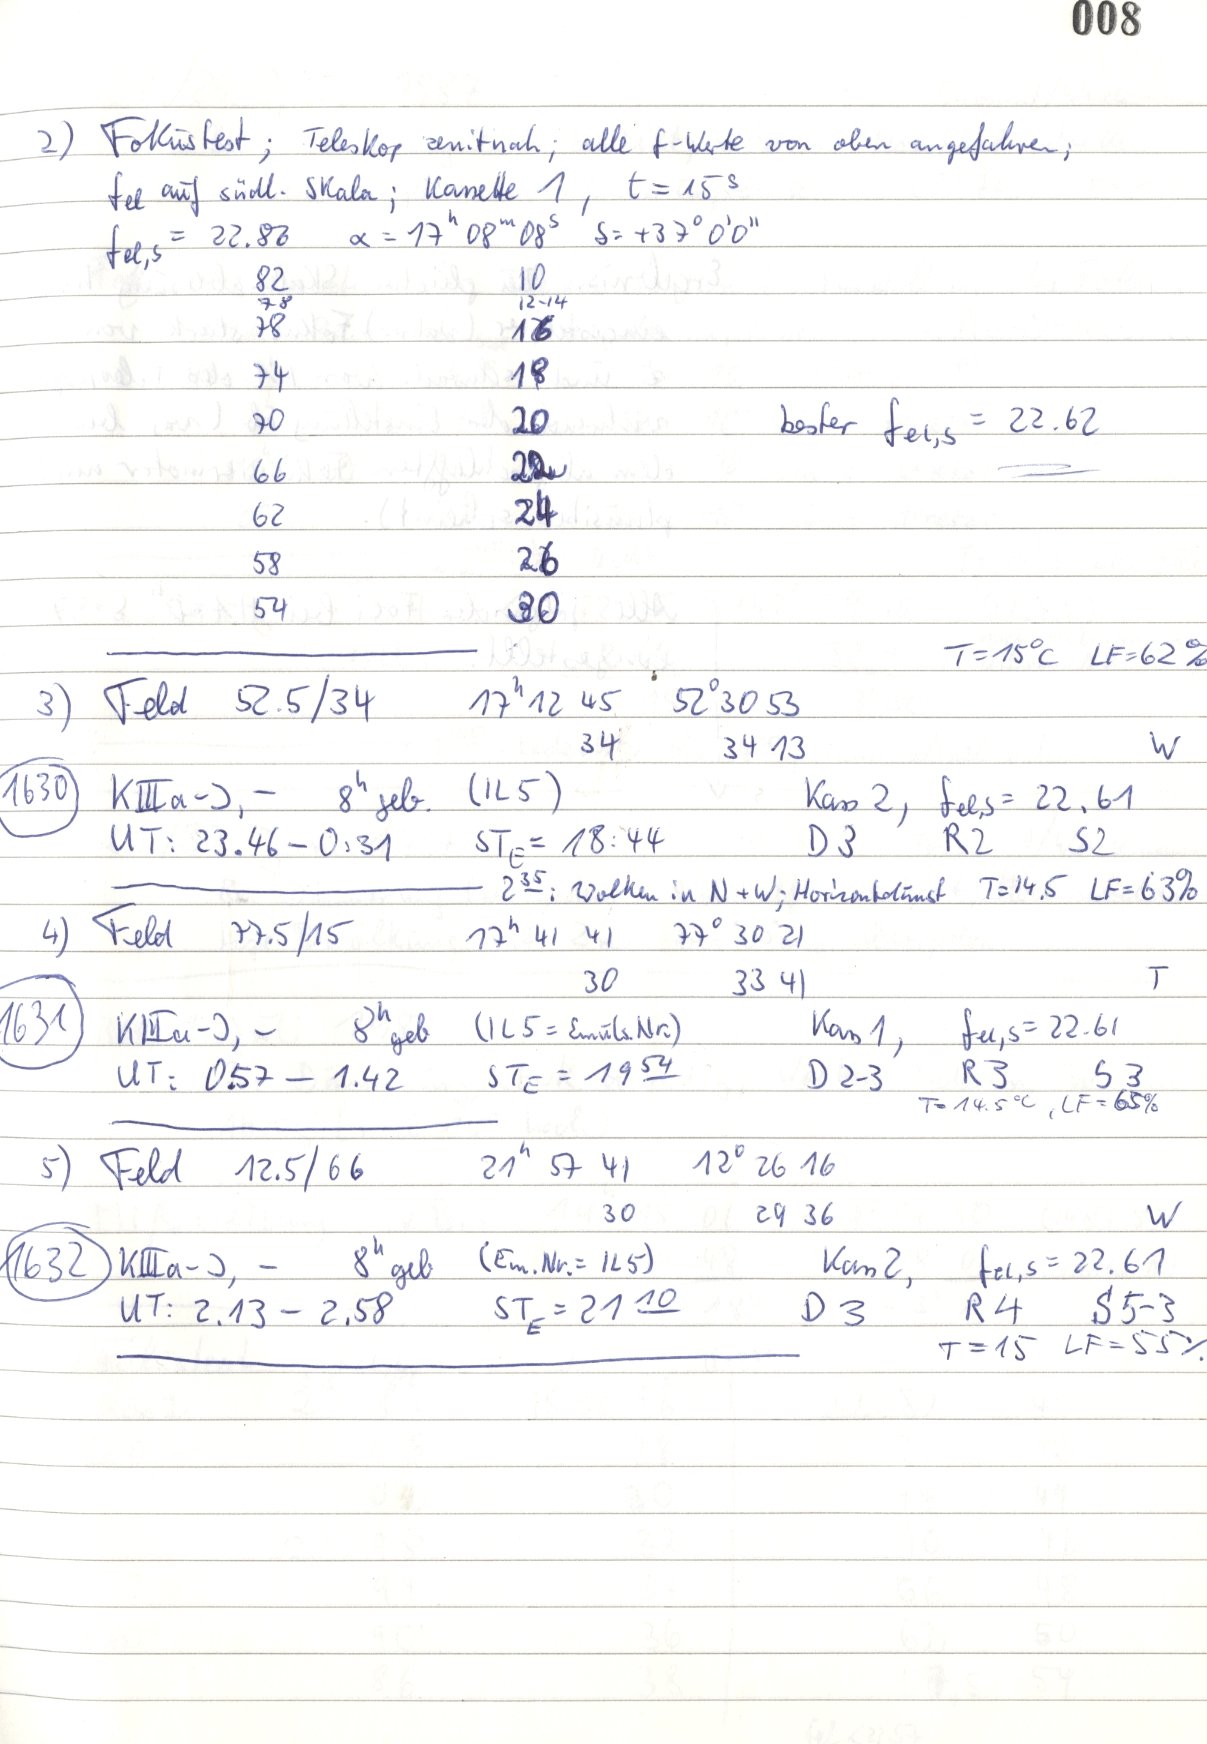 008
2) Fokustest; Teleskop zenitnah; alle f-Werte von oben angefahren;
fel auf südl. Skala; Kassette 1, t = 15 s
fel,s = 22.86 α = 17h 08m 08s δ = +37° 0' 0"
82 10
78 12-14
78 16
74 18
70 20 bester fel,s = 22.62
66 22
62 24
58 26
54 30
T = 15°C LF = 62%
3) Feld 52.5/34 17h 12 45 52° 30 53
34 34 13 W
1630 KIIIa-J, - 8h geb. (IL5) Kass 2, fel,s = 22.61
UT: 23.46 – 0:31 STE = 18:44 D3 R2 S2
2 35: Wolken in N + W; Horizontdunst T = 14.5 LF = 63%
4) Feld 77.5/15 17h 41 41 77° 30 21
30 33 41 T
1631 KIIIa-J, - 8h geb (IL5 = Emuls.Nr.) Kass 1, fel,s = 22.61
UT: 0.57 – 1.42 STE = 19 54 D 2-3 R 3 S 3
T = 14.5°C, LF = 65%
5) Feld 12.5/66 21h 57 41 12° 26 16
30 29 36 W
1632 KIIIa-J, - 8h geb (Em.Nr. = IL5) Kass 2, fel,s = 22.61
UT: 2.13 – 2.58 STE = 21 10 D 3 R 4 S 5-3
T = 15 LF = 55%